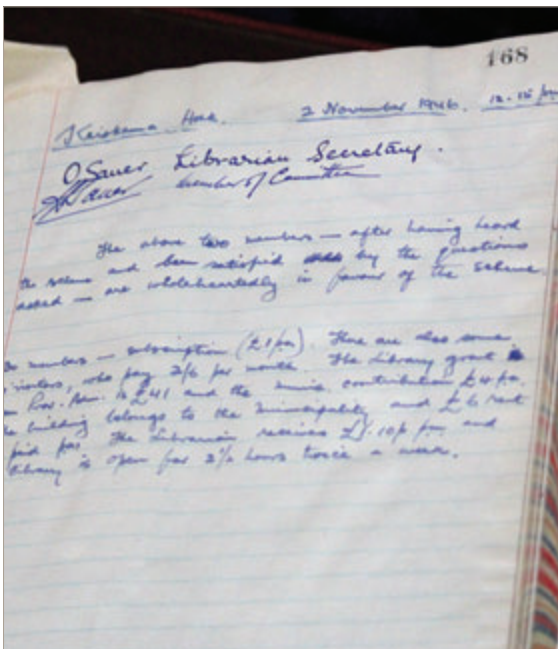 168
Keiskama Hoek. 2 November 1946. 12.15 pm
O Sauer Librarian Secretary.
Sauer member of Committee
The above two members — after having heard
the scheme and been satisfied by the questions
asked — are wholeheartedly in favour of the scheme
members — subscription (£1 pa). There are also some
visitors, who pay 2/6 per month. The Library grant
Prov. Adm. is £41 and the munic. contribution £4 pa.
building belongs to the Municipality and £6 rent
paid pa. The Librarian receives £1.10/- pm and
library is open for 2½ hours twice a week.